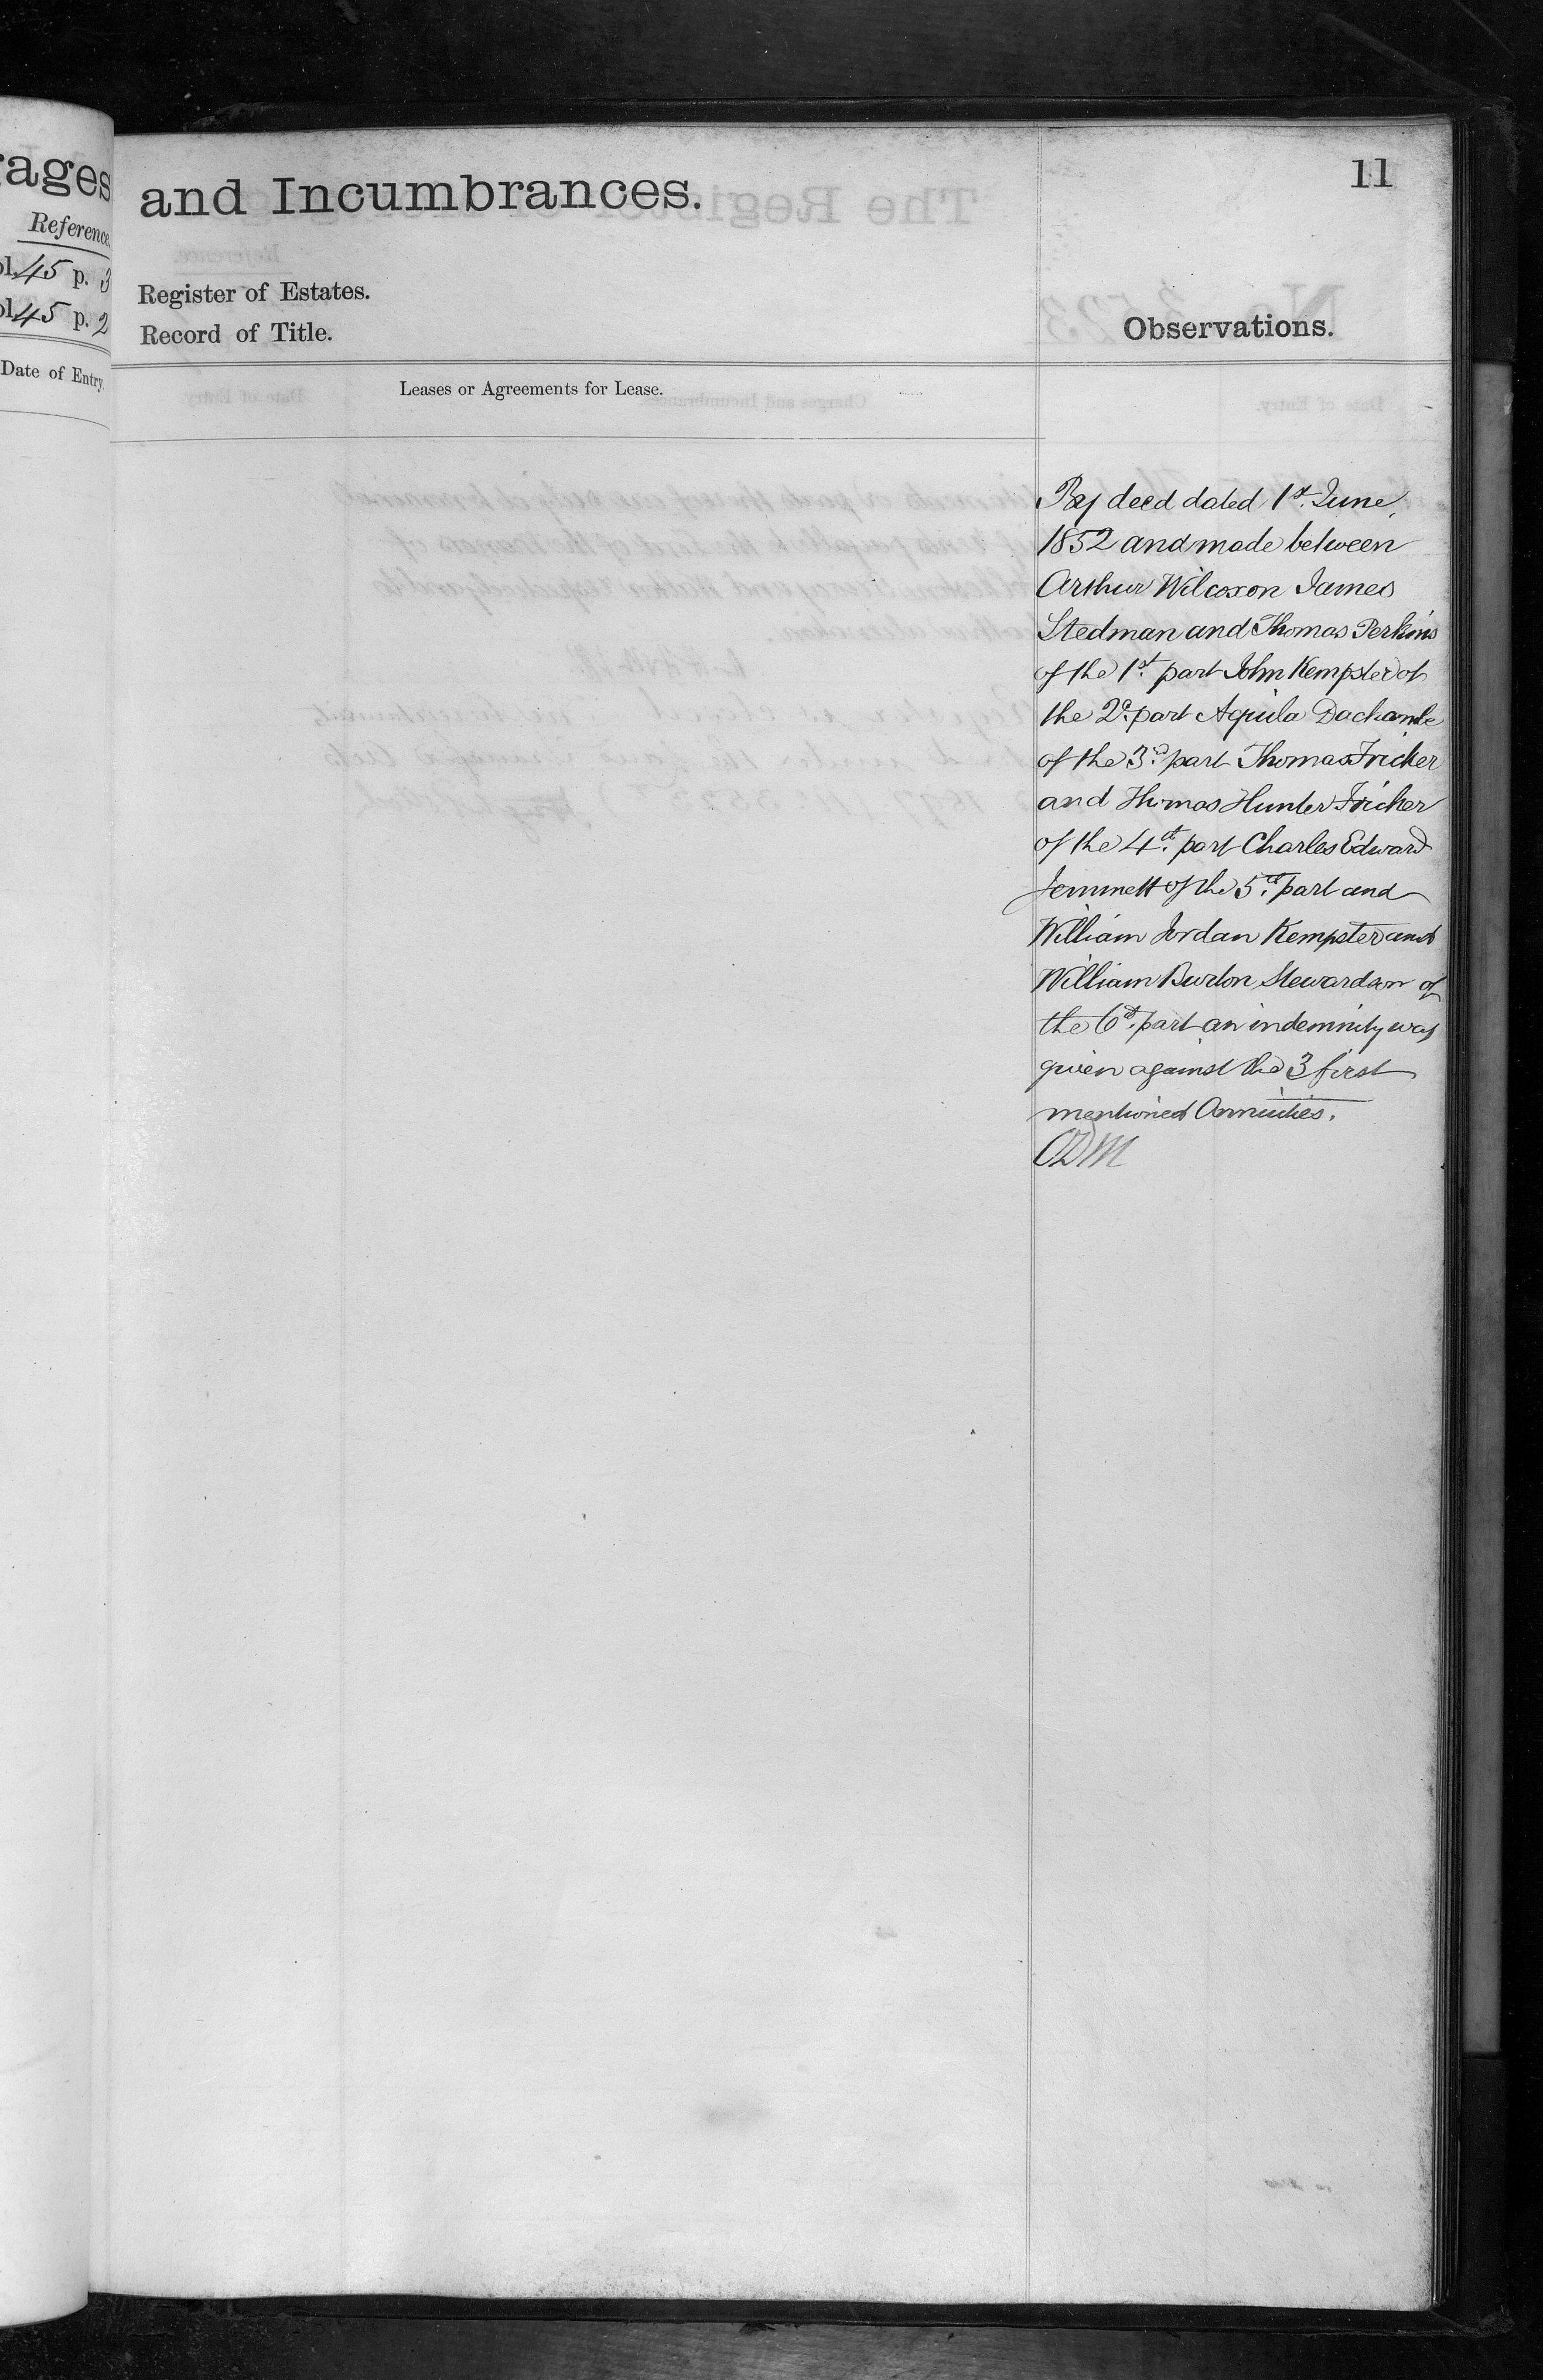 ages
Reference.
ol. 45 p. 3
ol. 45 p. 2
Date of Entry.
and Incumbrances.
11
Register of Estates.
Record of Title.
Observations.
Leases or Agreements for Lease.
By deed dated 1st. June
1852 and made between
Arthur Wilcoxon James
Stedman and Thomas Perkins
of the 1st. part John Kempster of
the 2d. part Aquila Dackombe
of the 3rd. part Thomas Fricker
and Thomas Hunter Fricker
of the 4th. part Charles Edward
Jemmett of the 5th. part and
William Jordan Kempster and
William Burton Stewardson of
the 6th. part an indemnity was
given against the 3 first
mentioned Annuities.